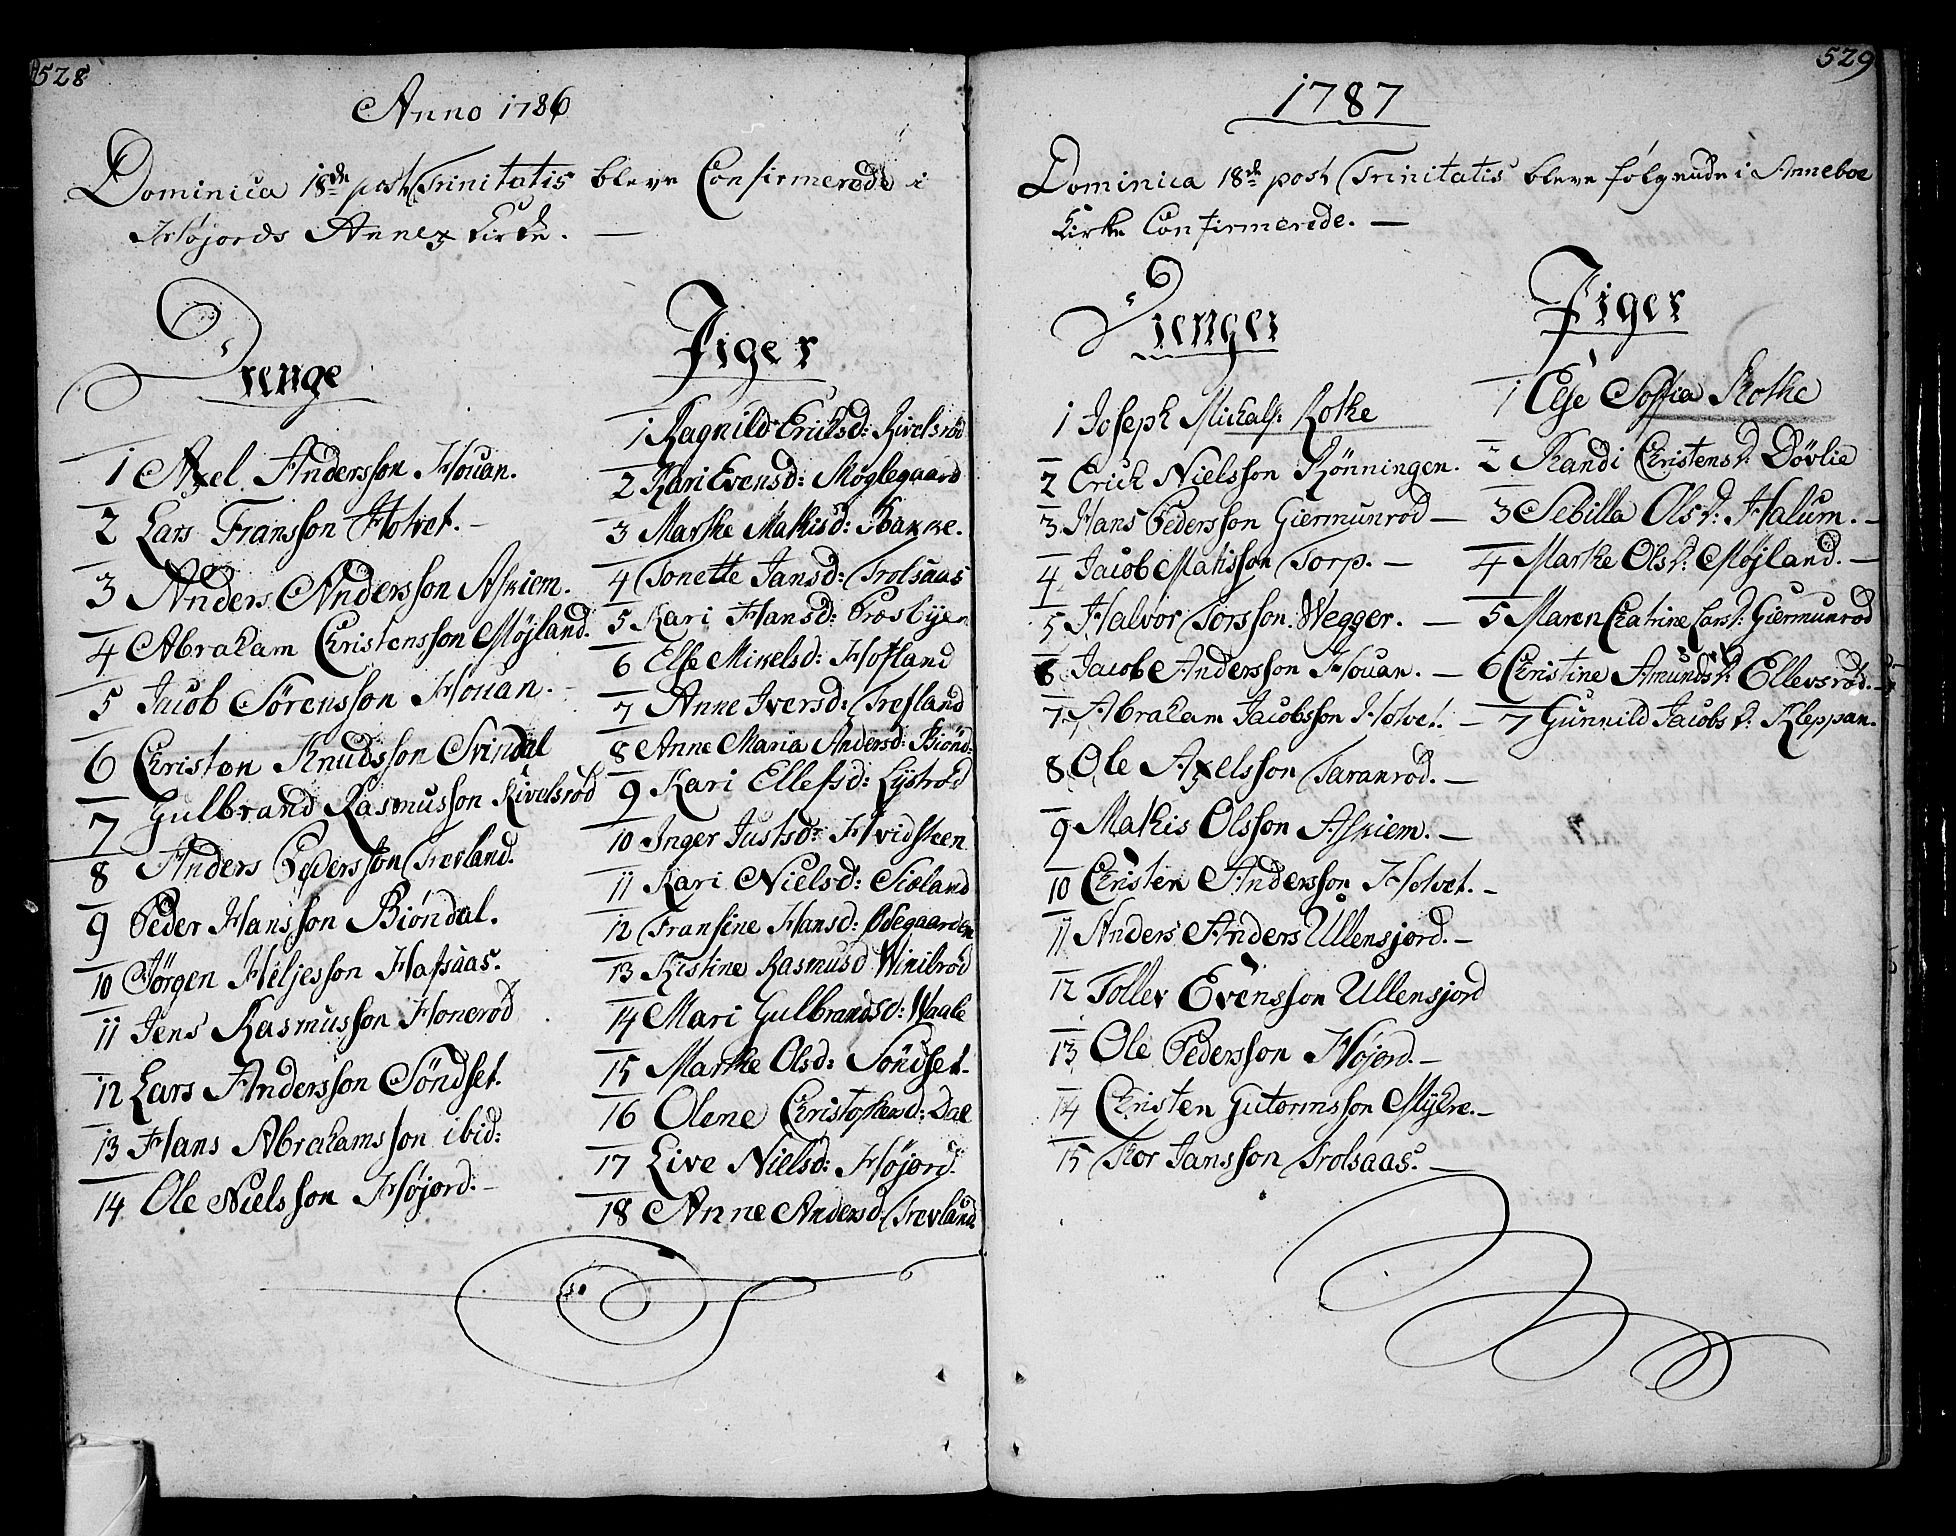 528
Anno 1786
Dominica 18de post Trinitatis bleve Confirmerede i
Höjords Annex Kirke. —
Drenge
1 Axel Andersson Houan.
2 Lars Fransson Holvet. –
3 Anders Andersson Askiem.
4 Abraham Christensson Möjland.
5 Jacob Sörensson Houan. –
6 Christen Knudsson Svindal
7 Gulbrand Rasmusson Kivelsröd
8 Anders Pedersson Trevland.
9 Peder Hansson Biöndal.
10 Jörgen Heljesson Hafsaas.
11 Jens Rasmusson Honeröd
12 Lars Andersson Söndset.
13 Hans Abrahamsson ibid:
14 Ole Nielsson Höjord. –
Piger
1 Ragnild Eriksd: Kivelsröd
2 Kari Evensd: Möglegaard
3 Marthe Mathisd: Bakke.
4 Tonette Jansd: Trolsaas
5 Kari Hansd: Præsbyen
6 Else Mikelsd: Hofland
7 Anne Iversd: Trefland
8 Anne Maria Andersd: Biönd:
9 Kari Ellefsd: Lyströd
10 Inger Justsd: Hvidsteen
11 Kari Nielsd: Siøland
12 Fransine Hansd: Ödegaarden
13 Kistine Rasmusd Winibröd
14 Mari Gulbrandsd: Waale
15 Marthe Olsd: Söndset.
16 Olene Christophersd: Dal
17 Live Nielsd: Höjord.
18 Anne Andersd: Trevland
529
1787
Dominica 18de post Trinitatis bleve følgende i Anneboe
Kirke Confirmerede. —
Drenger
1 Joseph Michals: Rothe
2 Erich Nielsson Rönningen.
3 Hans Pedersson Giermunröd —
4 Jacob Mathisson Torp. —
5 Halvor Torsson Wegger. —
6 Jacob Andersson Houan. —
7 Abraham Jacobsson Holvet. —
8 Ole Axelsson Taranröd. —
9 Mathis Olsson Askiem. —
10 Christen Andersson Holvet. –
11 Anders Anders Ullensjord. –
12 Tollev Evensson Ullensjord
13 Ole Pedersson Höjord. –
14 Christen Gutormsson Myhre. –
15 Thor Jansson Trolsaas. –
Piger
1 Else Soffia Rothe
2 Randi Christensd: Dövlie
3 Sebilla Olsd: Halum. –
4 Marthe Olsd: Möjland. –
5 Maren Chatrine Larsd: Giermunröd
6 Christine Amundsd: Ellevsröd. –
7 Gunnild Jacobsd: Kleppan.